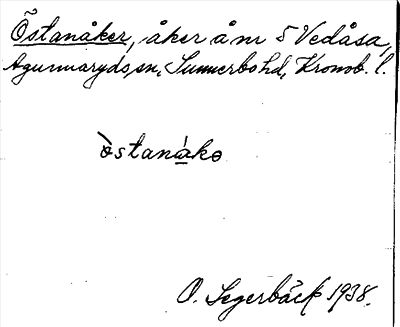 Östanåker, åker å nr 5 Vedåsa,
Agunnaryds sn, Sunnerbo hd, Kronob. l.
òstanákə
O. Segerbäck 1938.